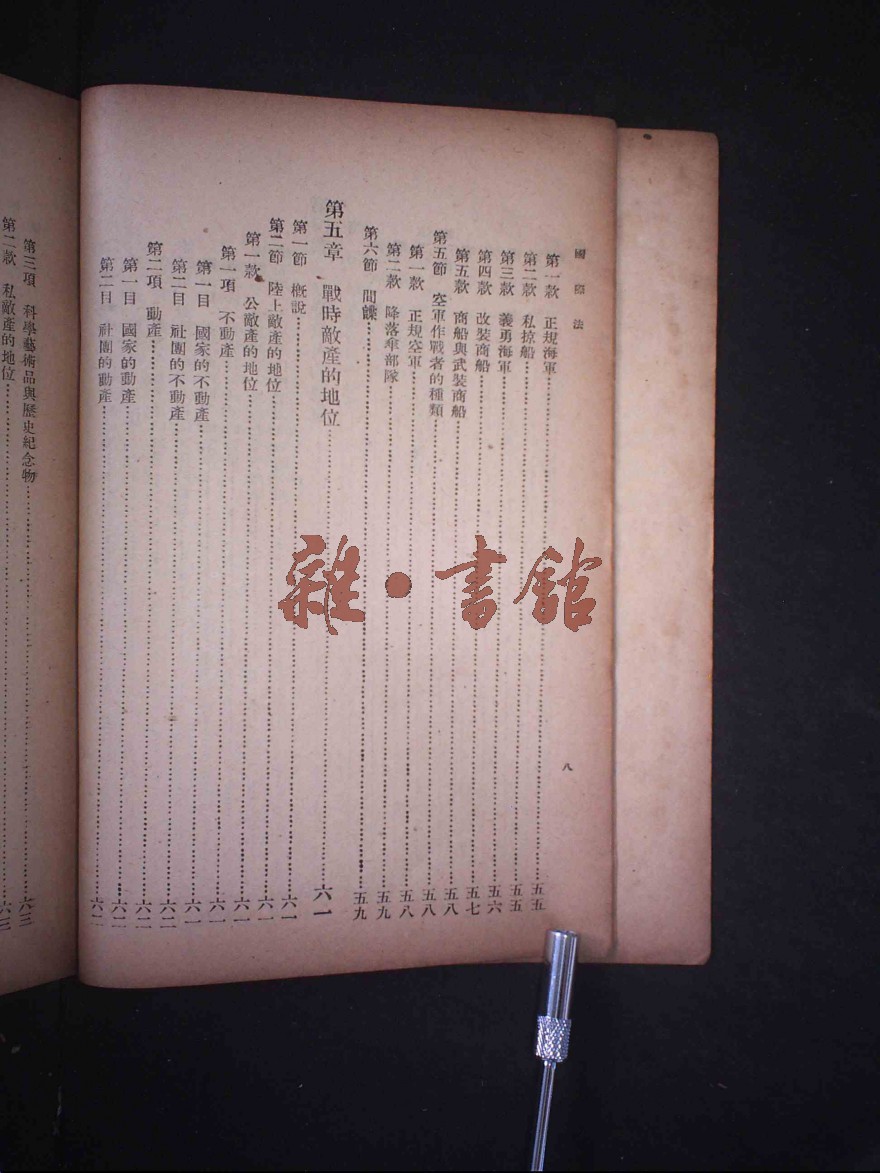 國際法
八
第一款 正規海軍………五五
第二款 私掠船………五五
第三款 義勇海軍………五六
第四款 改裝商船………五七
第五款 商船與武裝商船………五八
第五節 空軍作戰者的種類………五八
第一款 正規空軍………五八
第二款 降落傘部隊………五九
第六節 間諜………五九
第五章 戰時敵產的地位………六一
第一節 概說………六一
第二節 陸上敵產的地位………六一
第一款 公敵產的地位………六一
第一項 不動產………六一
第一目 國家的不動產………六一
第二目 社團的不動產………六二
第二項 動產………六二
第一目 國家的動產………六二
第二目 社團的動產………六二
第三項 科學藝術品與歷史紀念物………六三
第二款 私敵產的地位………六三
雜·書館